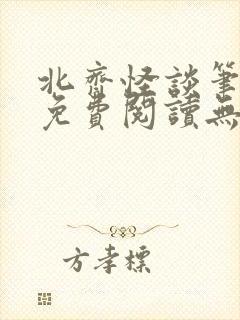 北齊怪談筆
免費閱讀無
方孝標